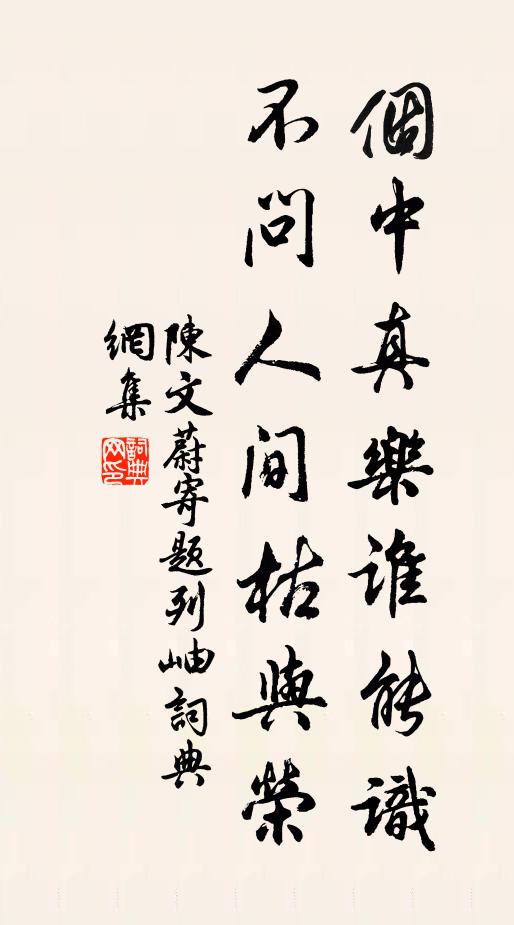 個中真樂誰能識
不問人間枯與榮
陳文蔚寄題列岫詞典
網集
詞典網印